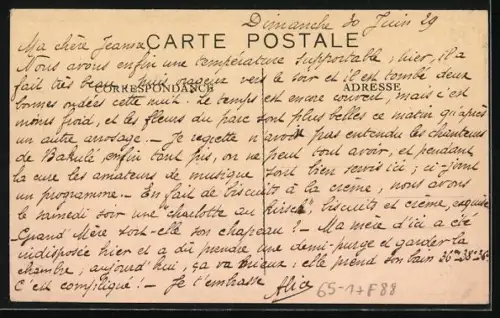 Dimanche 30 Juin 29
Ma chère Jeanne
CARTE POSTALE
Nous avons enfin une température supportable; hier, il a
fait très beau, puis orageux vers le soir et il est tombé deux
CORRESPONDANCE
ADRESSE
bonnes ondées cette nuit. Le temps est encore couvert, mais c'est
moins froid, et les fleurs du parc sont plus belles ce matin qu'après
un autre arrosage. - Je regrette n'avoir pas entendu les chanteurs
de Bakulé enfin tant pis, on ne peut tout avoir, et pendant
la cure les amateurs de musique sont bien servis ici; ci-joint
un programme. - En fait de biscuits à la crème, nous avons
le samedi soir une "charlotte au kirsch", biscuits et crème, exquise
Grand'Mère sort-elle son chapeau! - Ma mère d'ici a été
indisposée hier et a dû prendre une demi-purge et garder la
chambre, aujourd'hui, ça va mieux; elle prend son bain 36°-38°-36°
C'est compliqué! - Je t'embrasse Alice
65-1+F88